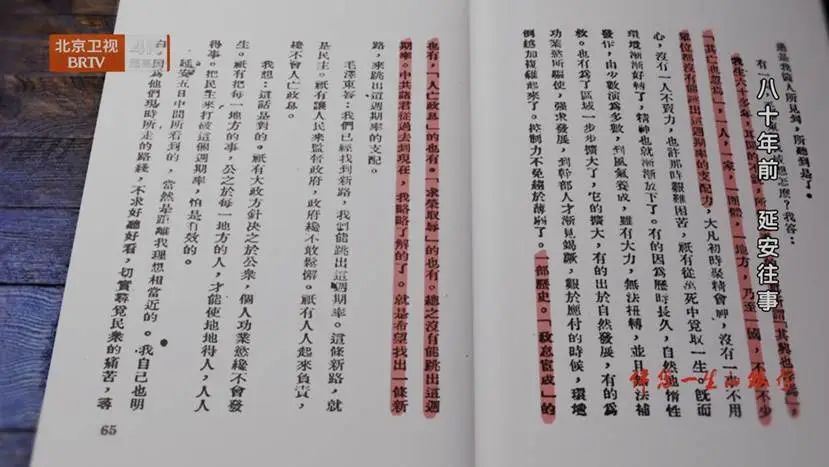 北京卫视
BRTV
4K
超高清
八十年前 延安往事
過是我個人所見到，所聽到是了。
怎麼？我答：
我生六十多年，耳聞的不說，所
「其興也浡焉」，
「其亡也忽焉」，一人，一家，一團體，一地方，乃至一國，不少
單位都沒有能跳出這週期率的支配力，大凡初時聚精會神，沒有一事不用
心，沒有一人不賣力，也許那時艱難困苦，祇有從萬死中覓取一生。既而
環境漸漸好轉了，精神也就漸漸放下了。有的因為歷時長久，自然地惰性
發作，由少數演為多數，到風氣養成，雖有大力，無法扭轉，並且無法補
救。也有為了區域一步步擴大了，它的擴大，有的出於自然發展，有的為
功業慾所驅使，强求發展，到幹部人才漸見竭蹶，艱於應付的時候，環境
倒越加複雜起來了。控制力不免趨於薄弱了。一部歷史。「政怠宦成」的
也有。「人亡政息」的也有。「求榮取辱」的也有。總之沒有能跳出這週
期率。中共諸君從過去到現在，我略略了解的了。就是希望找出一條新
路，來跳出這週期率的支配。
毛澤東答：我們已經找到新路，我們能跳出這週期率。這條新路，就
是民主。祇有讓人民來監督政府，政府纔不敢鬆懈。祇有人人起來負責，
纔不會人亡政息。
我想：這話是對的。祇有大政方針決之於公衆，個人功業慾纔不會發
生。祇有把每一地方的事，公之於每一地方的人，才能使地地得人，人人
得事。把民主來打破這個週期率，怕是有效的。
延安五日中間所看到的，當然是距離我理想相當近的。我自己也明
白，因為他們現時所走的路綫，不求好聽好看，切實尋覓民衆的痛苦，尋
65